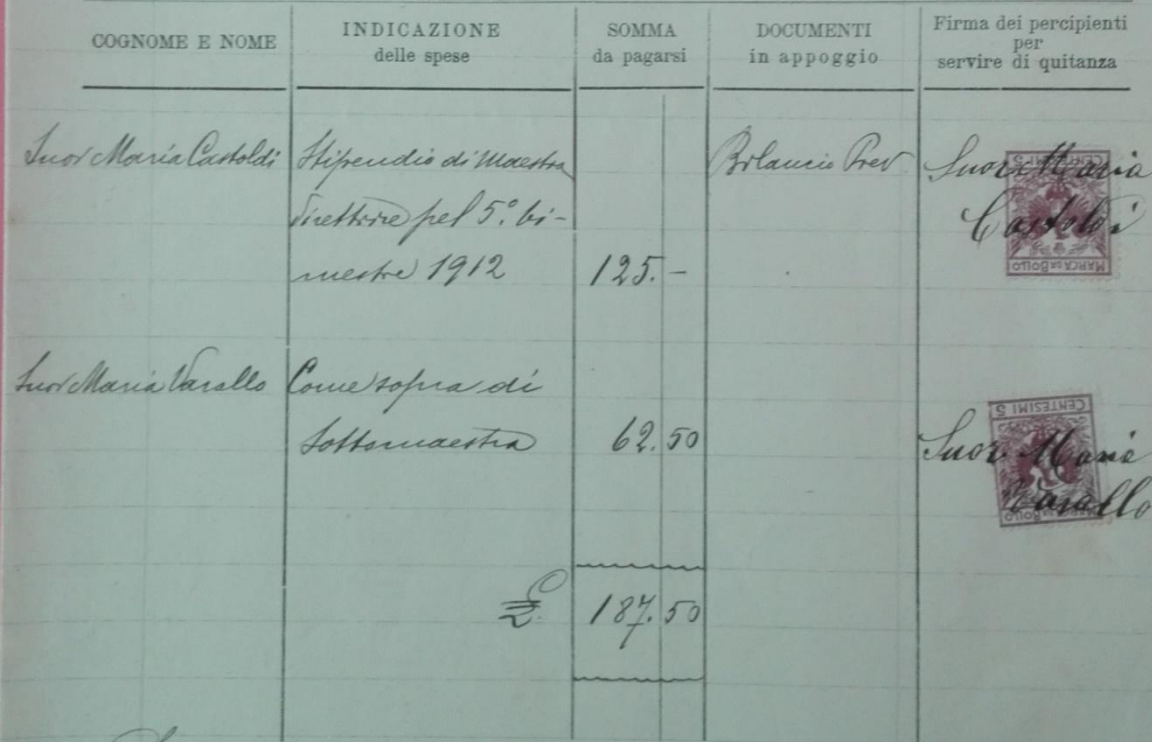 COGNOME E NOME
INDICAZIONE
delle spese
SOMMA
da pagarsi
DOCUMENTI
in appoggio
Firma dei percipienti
per
servire di quitanza
Suor Maria Castoldi
Stipendio di Maestra
direttrice pel 5.° bi-
mestre 1912
125.-
Bilancio Prev
Suor Maria
Castoldi
CENTESIMI 5
MARCA DA BOLLO
Suor Maria Varallo
Come sopra di
Sottomaestra
62.50
Suor Maria
Varallo
CENTESIMI 5
MARCA DA BOLLO
£
187.50